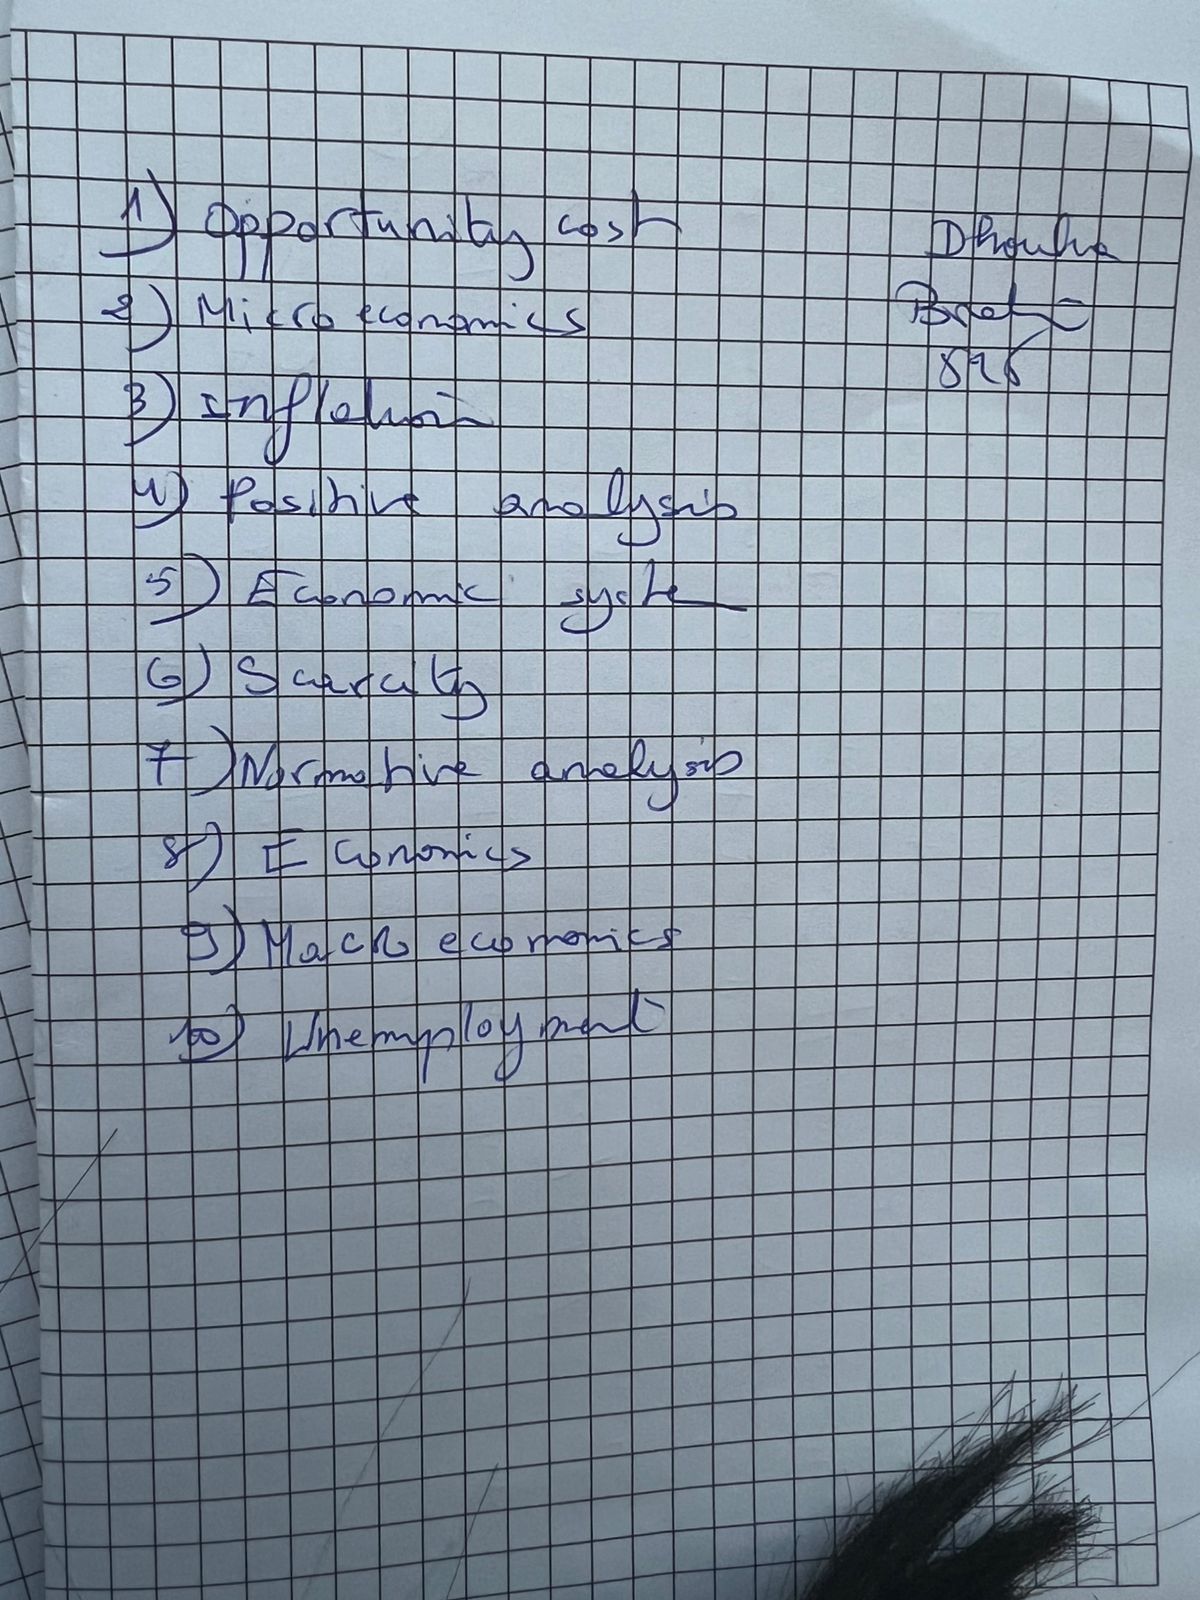 1) Opportunity cost
2) Micro economics
3) Inflation
4) Positive analysis
5) Economic system
6) Scarcity
7) Normative analysis
8) Economics
9) Macro economics
10) Unemployment
Dhouha